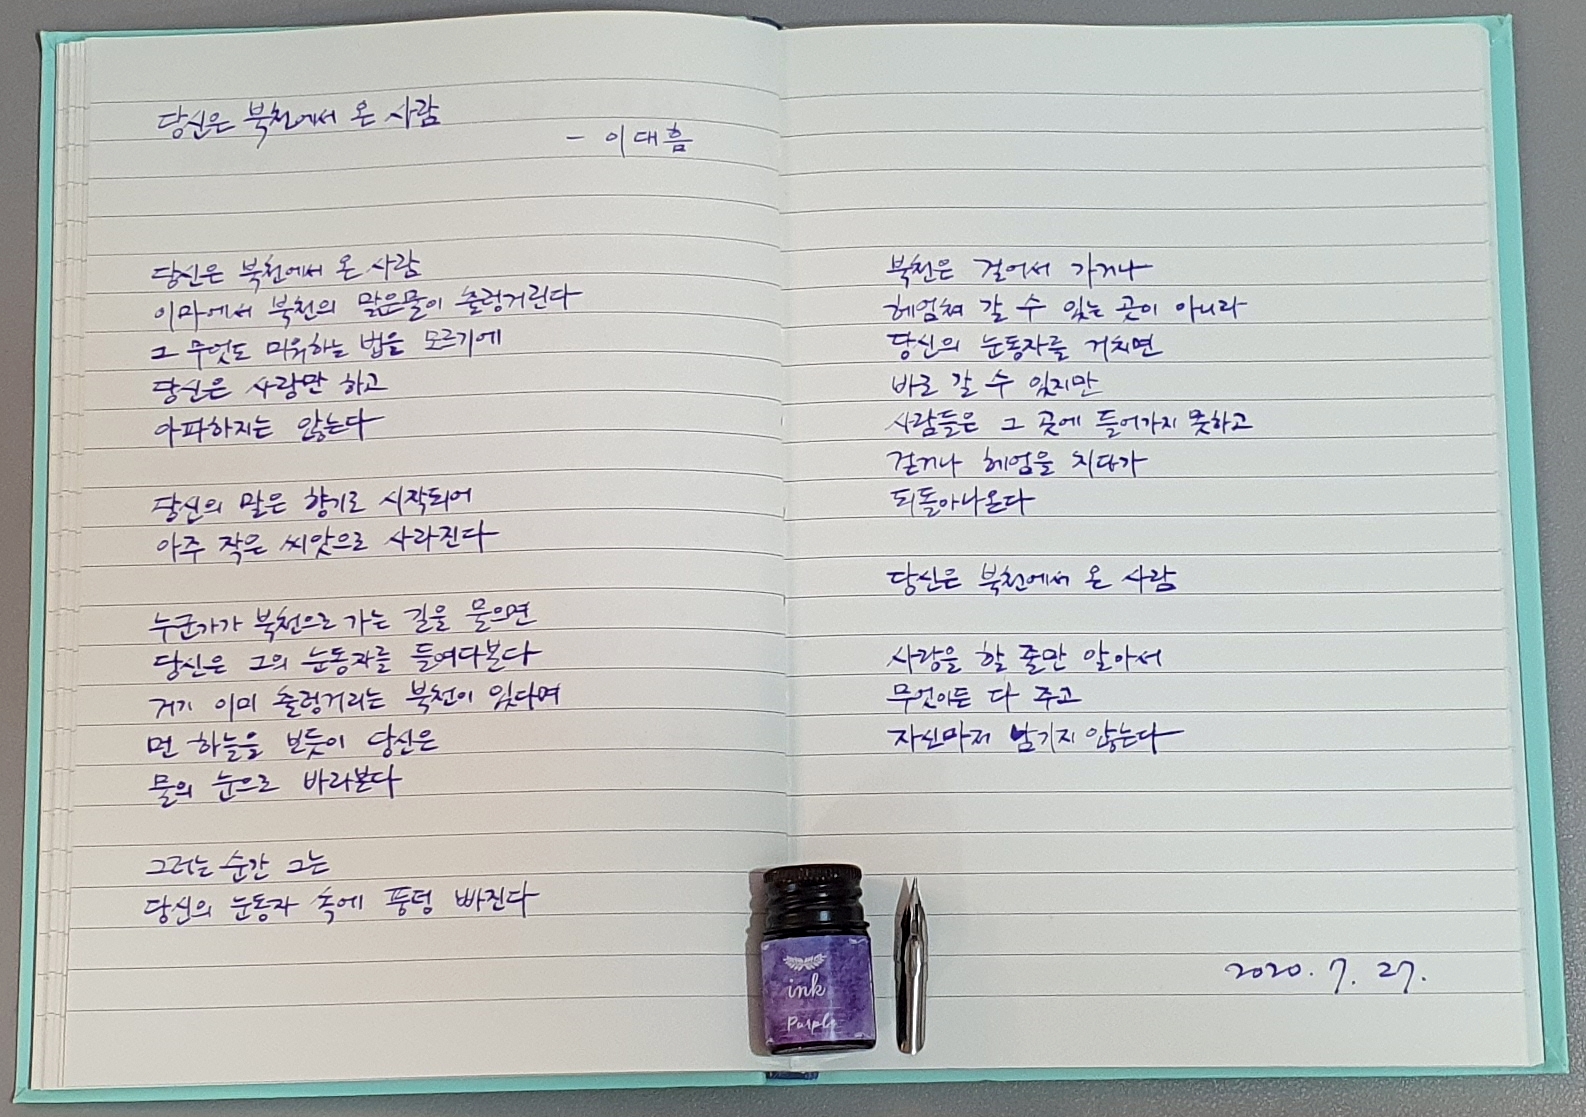 당신은 북천에서 온 사람
- 이대흠
당신은 북천에서 온 사람
이마에서 북천의 맑은물이 출렁거린다
그 무엇도 미워하는 법을 모르기에
당신은 사랑만 하고
아파하지는 않는다
당신의 말은 향기로 시작되어
아주 작은 씨앗으로 사라진다
누군가가 북천으로 가는 길을 물으면
당신은 그의 눈동자를 들여다본다
거기 이미 출렁거리는 북천이 있다며
먼 하늘을 보듯이 당신은
물의 눈으로 바라본다
그러는 순간 그는
당신의 눈동자 속에 풍덩 빠진다
북천은 걸어서 가거나
헤엄쳐 갈 수 있는 곳이 아니라
당신의 눈동자를 거치면
바로 갈 수 있지만
사람들은 그 곳에 들어가지 못하고
걷거나 헤엄을 치다가
되돌아나온다
당신은 북천에서 온 사람
사랑을 할 줄만 알아서
무엇이든 다 주고
자신마저 남기지 않는다
2020. 7. 27.
ink
Purple